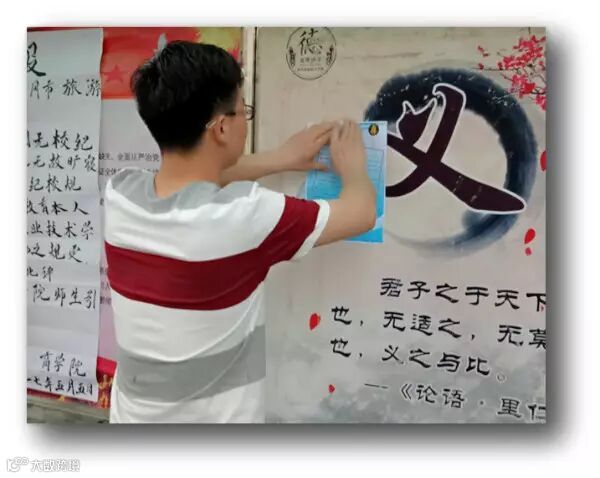 月市旅游
无校纪
无故旷
纪校规
教育本人
业技术学
之规定
院师生引
商学院
一七年五月五日
全面从严治党
德
义
君子之于天下
也，无适之，无莫
也，义之与比。
—《论语·里仁
大欧跨境